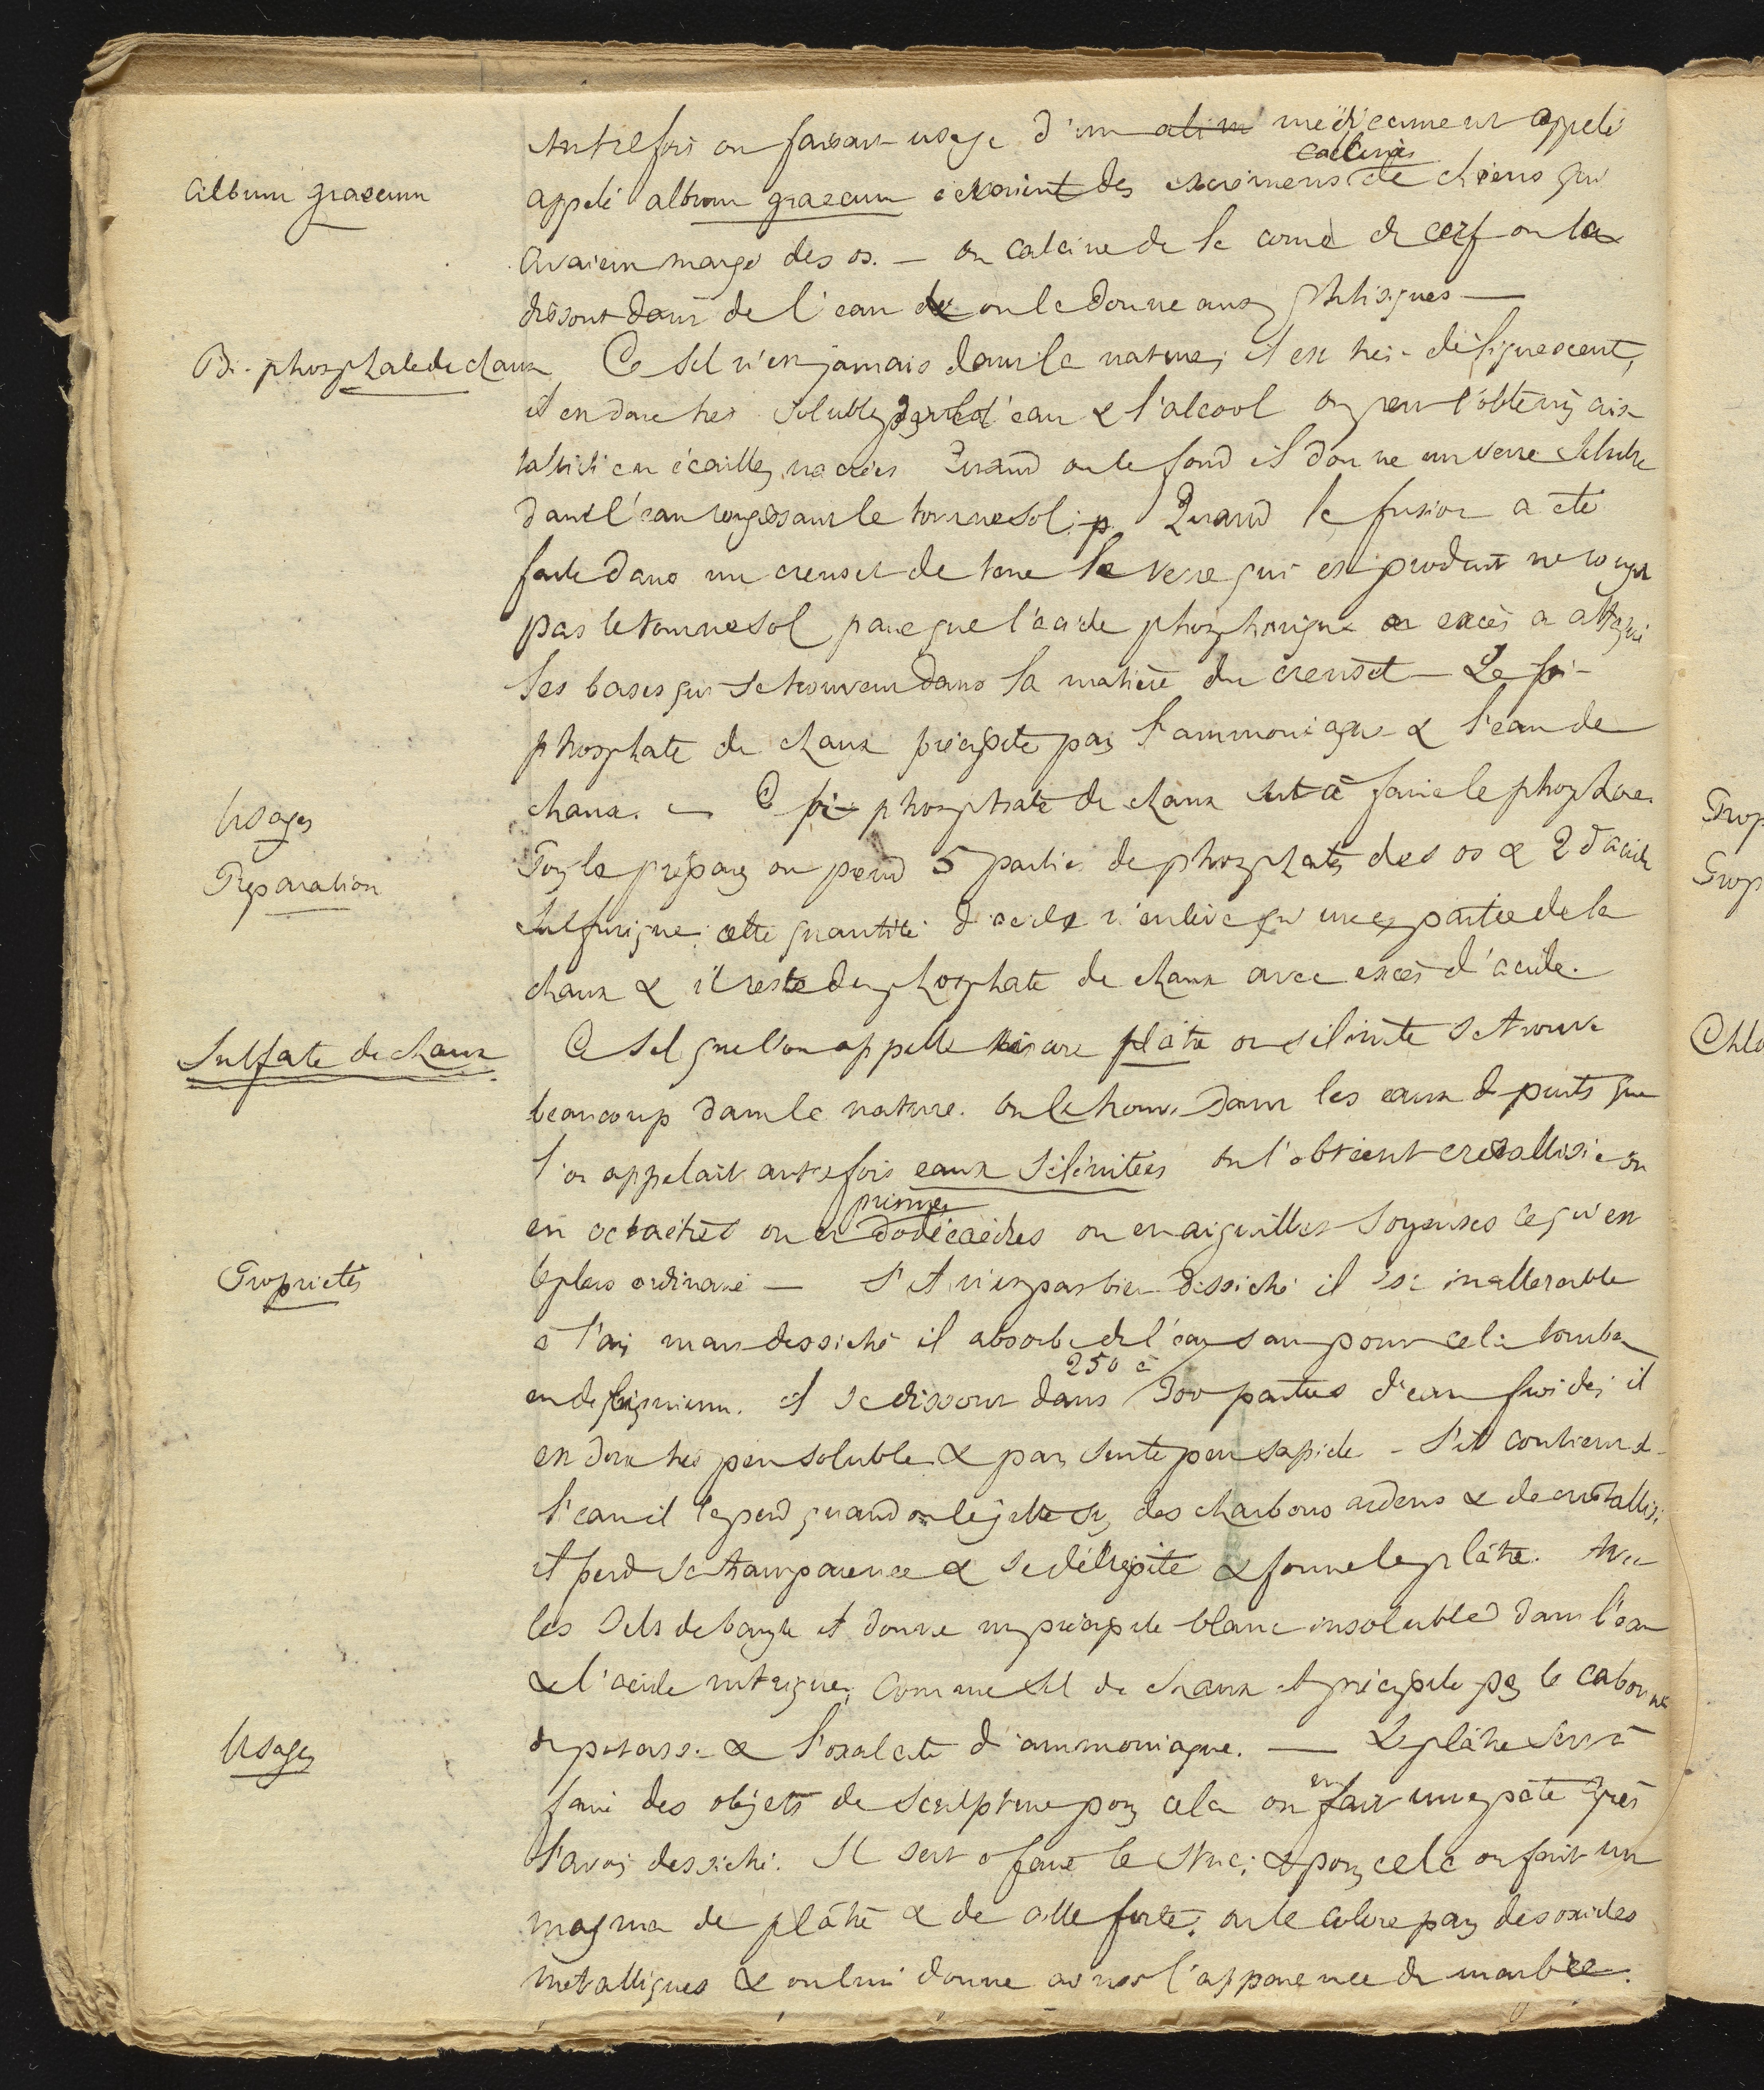 Autrefois on faisait usage d'un alim médicament appelé
calcinés
Album graecum
appelé album graecum c'étaient des excrémens de chiens qui
avaient mangé des os. — on calcine de la corne de cerf on la
dissout dans de l'eau et on le donne aux phtisiques —
Bi-phosphate de chaux
Ce sel n'est jamais dans la nature, il est très-déliquescent,
il est donc très soluble dans l'eau & l'alcool on peut l'obtenir cris-
tallisé en écailles nacrées Quand on le fond il donne un verre soluble
dans l'eau rougissant le tournesol. Quand la fusion a été
faite dans un creuset de terre le verre qui est produit ne rougit
pas le tournesol parceque l'acide phosphorique en excès a attaqué
les bases qui se trouvent dans la matière du creuset — Le bi-
phosphate de chaux précipite par l'ammoniaque & l'eau de
Usages
chaux. — Ce bi-phosphate de chaux sert à faire le phosphore.
Préparation
Pour le préparer on prend 5 parties de phosphate des os & 2 d'acide
sulfurique; cette quantité d'acide n'enlève qu'une partie de la
chaux & il reste du phosphate de chaux avec excès d'acide.
Sulfate de chaux
Ce sel que l'on appelle encore plâtre ou sélénite se trouve
beaucoup dans la nature. on le trouve dans les eaux de puits que
l'on appelait autrefois eaux séléniteés on l'obtient cristallisé en
prismes
en octaèdres ou en dodécaèdres ou en aiguilles soyeuses ce qui est
Propriétés
le plus ordinaire — S'il n'est pas bien desséché il est inaltérable
à l'air mais desséché il absorbe de l'eau sans pour cela tomber
250 à
en deliquium. il se dissout dans 300 parties d'eau froide; il
est donc très peu soluble & par suite peu sapide — S'il contient de
l'eau il la perd quand on le jette sur des charbons ardens & de cristallisé
il perd sa transparence & se décrépite & forme le plâtre. Avec
les sels de baryte il donne un précipité blanc insoluble dans l'eau
& l'acide nitrique; comme sel de chaux il précipite par le carbonate
Usages
de potasse & l'oxalate d'ammoniaque. — Le plâtre sert à
en
faire des objets de sculpture pour cela on fait une pâte après
l'avoir desséché. Il sert à faire le stuc; & pour cela on fait un
magma de plâtre & de colle forte; on le colore par des oxides
métalliques & on lui donne ainsi l'apparence de marbre.
Prop
Prep
Chlo